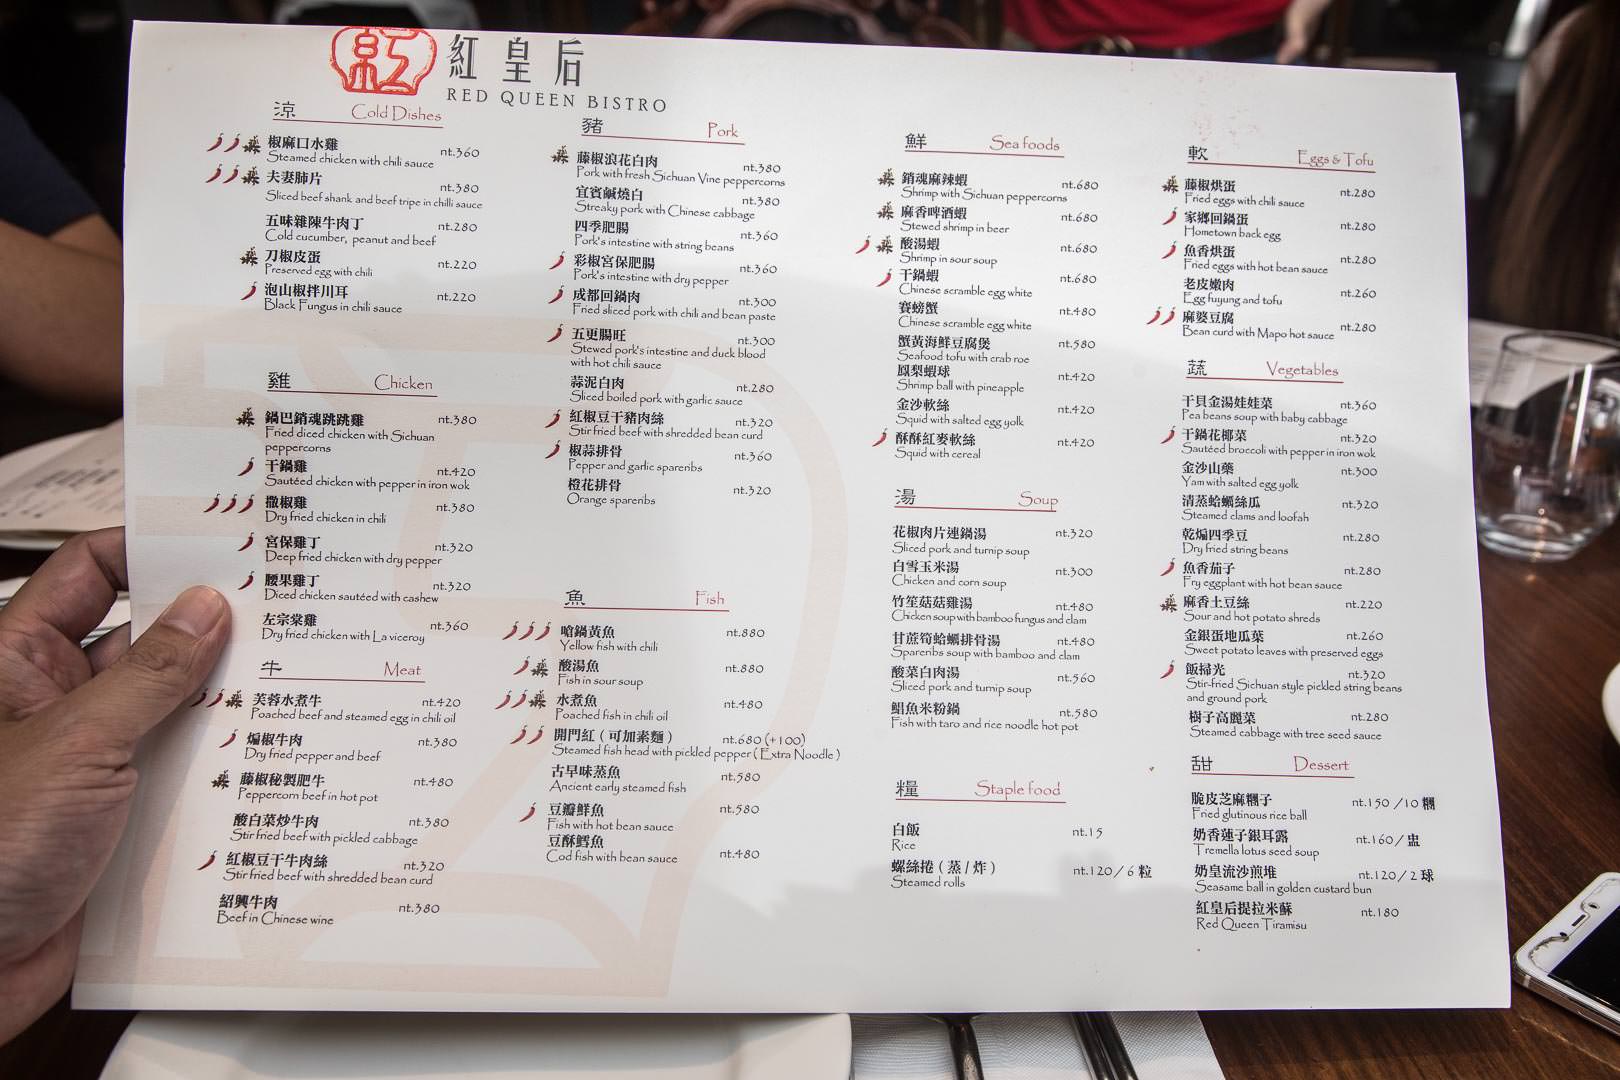 紅
紅皇后
RED QUEEN BISTRO
涼 Cold Dishes
椒麻口水雞 nt.360
Steamed chicken with chili sauce
夫妻肺片 nt.380
Sliced beef shank and beef tripe in chilli sauce
五味雜陳牛肉丁 nt.280
Cold cucumber, peanut and beef
刀椒皮蛋 nt.220
Preserved egg with chili
泡山椒拌川耳 nt.220
Black Fungus in chili sauce
雞 Chicken
鍋巴銷魂跳跳雞 nt.380
Fried diced chicken with Sichuan
peppercorns
干鍋雞 nt.420
Sautéed chicken with pepper in iron wok
撒椒雞 nt.380
Dry fried chicken in chili
宮保雞丁 nt.320
Deep fried chicken with dry pepper
腰果雞丁 nt.320
Diced chicken sautéed with cashew
左宗棠雞 nt.360
Dry fried chicken with La viceroy
牛 Meat
芙蓉水煮牛 nt.420
Poached beef and steamed egg in chili oil
煸椒牛肉 nt.380
Dry fried pepper and beef
藤椒秘製肥牛 nt.480
Peppercorn beef in hot pot
酸白菜炒牛肉 nt.380
Stir fried beef with pickled cabbage
紅椒豆干牛肉絲 nt.320
Stir fried beef with shredded bean curd
紹興牛肉 nt.380
Beef in Chinese wine
豬 Pork
藤椒浪花白肉 nt.380
Pork with fresh Sichuan Vine peppercorns
宜賓鹹燒白 nt.380
Streaky pork with Chinese cabbage
四季肥腸 nt.360
Pork's intestine with string beans
彩椒宮保肥腸 nt.360
Pork's intestine with dry pepper
成都回鍋肉 nt.300
Fried sliced pork with chili and bean paste
五更腸旺 nt.300
Stewed pork's intestine and duck blood
with hot chili sauce
蒜泥白肉 nt.280
Sliced boiled pork with garlic sauce
紅椒豆干豬肉絲 nt.320
Stir fried beef with shredded bean curd
椒蒜排骨 nt.360
Pepper and garlic spareribs
橙花排骨 nt.320
Orange spareribs
魚 Fish
嗆鍋黃魚 nt.880
Yellow fish with chili
酸湯魚 nt.880
Fish in sour soup
水煮魚 nt.480
Poached fish in chili oil
開門紅 ( 可加素麵 ) nt.680 (+100)
Steamed fish head with pickled pepper ( Extra Noodle )
古早味蒸魚 nt.580
Ancient early steamed fish
豆瓣鮮魚 nt.580
Fish with hot bean sauce
豆酥鱈魚 nt.480
Cod fish with bean sauce
鮮 Sea foods
銷魂麻辣蝦 nt.680
Shrimp with Sichuan peppercorns
麻香啤酒蝦 nt.680
Stewed shrimp in beer
酸湯蝦 nt.680
Shrimp in sour soup
干鍋蝦 nt.680
Chinese scramble egg white
賽螃蟹 nt.480
Chinese scramble egg white
蟹黃海鮮豆腐煲 nt.580
Seafood tofu with crab roe
鳳梨蝦球 nt.420
Shrimp ball with pineapple
金沙軟絲 nt.420
Squid with salted egg yolk
酥酥紅麥軟絲 nt.420
Squid with cereal
湯 Soup
花椒肉片連鍋湯 nt.320
Sliced pork and turnip soup
白雪玉米湯 nt.300
Chicken and corn soup
竹笙菇菇雞湯 nt.480
Chicken soup with bamboo fungus and clam
甘蔗筍蛤蠣排骨湯 nt.480
Spareribs soup with bamboo and clam
酸菜白肉湯 nt.560
Sliced pork and turnip soup
鯧魚米粉鍋 nt.580
Fish with taro and rice noodle hot pot
糧 Staple food
白飯 nt.15
Rice
螺絲捲 ( 蒸 / 炸 ) nt.120 / 6 粒
Steamed rolls
軟 Eggs & Tofu
藤椒烘蛋 nt.280
Fried eggs with chili sauce
家鄉回鍋蛋 nt.280
Hometown back egg
魚香烘蛋 nt.280
Fried eggs with hot bean sauce
老皮嫩肉 nt.260
Egg fuyung and tofu
麻婆豆腐 nt.280
Bean curd with Mapo hot sauce
蔬 Vegetables
干貝金湯娃娃菜 nt.360
Pea beans soup with baby cabbage
干鍋花椰菜 nt.320
Sautéed broccoli with pepper in iron wok
金沙山藥 nt.300
Yam with salted egg yolk
清蒸蛤蠣絲瓜 nt.320
Steamed clams and loofah
乾煸四季豆 nt.280
Dry fried string beans
魚香茄子 nt.280
Fry eggplant with hot bean sauce
麻香土豆絲 nt.220
Sour and hot potato shreds
金銀蛋地瓜葉 nt.260
Sweet potato leaves with preserved eggs
飯掃光 nt.320
Stir-fried Sichuan style pickled string beans
and ground pork
樹子高麗菜 nt.280
Steamed cabbage with tree seed sauce
甜 Dessert
脆皮芝麻糰子 nt.150 / 10 糰
Fried glutinous rice ball
奶香蓮子銀耳露 nt.160 / 盅
Tremella lotus seed soup
奶皇流沙煎堆 nt.120 / 2 球
Seasame ball in golden custard bun
紅皇后提拉米蘇 nt.180
Red Queen Tiramisu